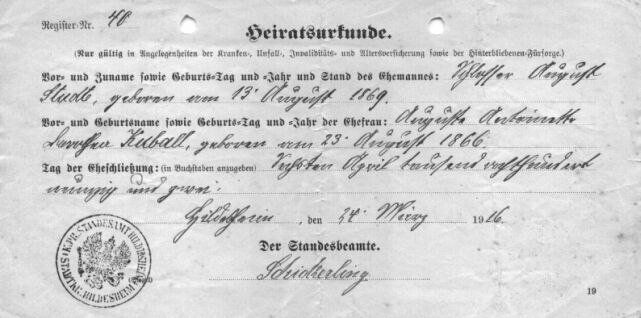 Register-Nr. 40
Heiratsurkunde.
(Nur gültig in Angelegenheiten der Kranken-, Unfall-, Invaliditäts- und Altersversicherung sowie der Hinterbliebenen-Fürsorge.)
Vor- und Zuname sowie Geburts-Tag und -Jahr und Stand des Ehemannes: Schlosser August
geboren am 13. August 1869.
Vor- und Geburtsname sowie Geburts-Tag und -Jahr der Ehefrau: Auguste Antoinette
Dorothea geboren am 23. August 1866.
Tag der Eheschließung: (in Buchstaben anzugeben) Sechsten April tausend achthundert
neunzig und zwei.
Hildesheim, den 24. März 1916.
Der Standesbeamte.
Schickerling
K.PR. STANDESAMT HILDESHEIM
STADTKR. HILDESHEIM
19